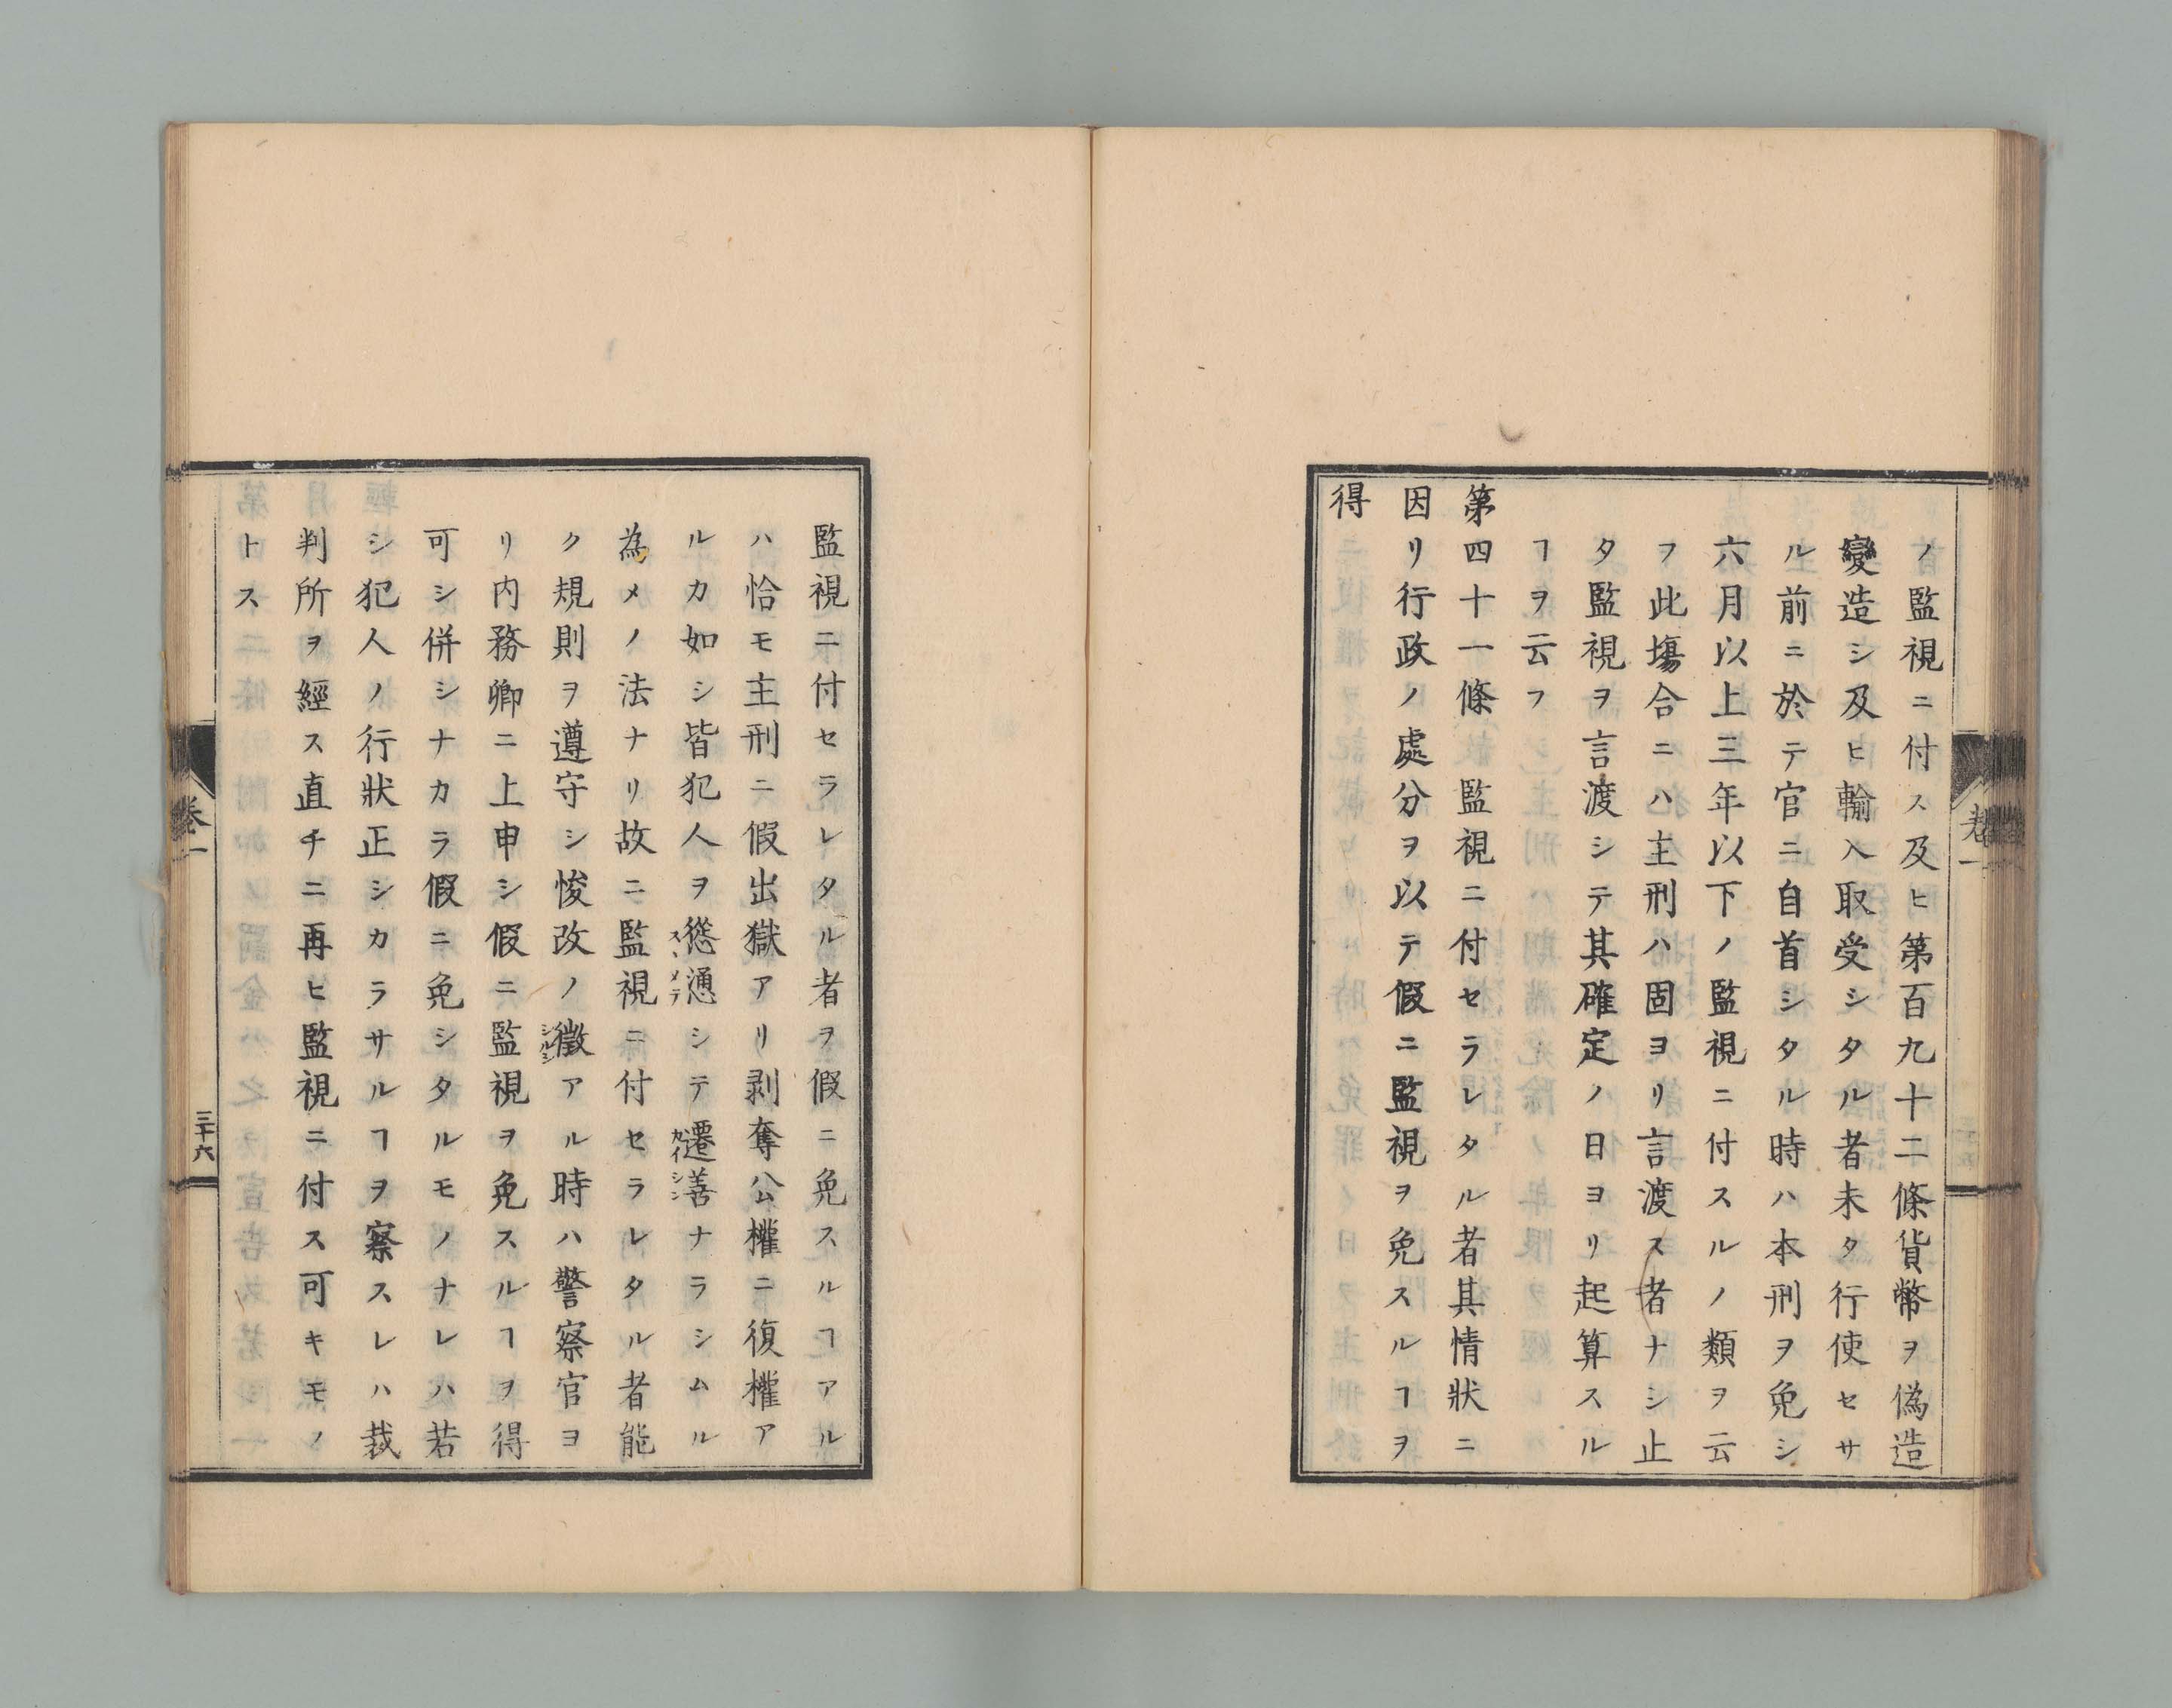 ノ監視ニ付ス及ヒ第百九十二條貨幣ヲ偽造
變造シ及ヒ輸入取受シタル者未タ行使セサ
ル前ニ於テ官ニ自首シタル時ハ本刑ヲ免シ
六月以上三年以下ノ監視ニ付スルノ類ヲ云
フ此塲合ニハ主刑ハ固ヨリ言渡ス者ナシ止
タ監視ヲ言渡シテ其確定ノ日ヨリ起算スル
ヿヲ云フ
第四十一條 監視ニ付セラレタル者其情狀ニ
因リ行政ノ處分ヲ以テ假ニ監視ヲ免スルヿヲ
得
卷一
監視ニ付セラレタル者ヲ假ニ免スルヿアル
ハ恰モ主刑ニ假出獄アリ剥奪公權ニ復權ア
ルカ如シ皆犯人ヲ慫慂シテ遷善ナラシムル
スヽメテ
カイシン
為メノ法ナリ故ニ監視ニ付セラレタル者能
ク規則ヲ遵守シ悛改ノ徴アル時ハ警察官ヨ
シルシ
リ内務卿ニ上申シ假ニ監視ヲ免スルヿヲ得
可シ併シナカラ假ニ免シタルモノナレハ若
シ犯人ノ行狀正シカラサルヿヲ察スレハ裁
判所ヲ經ス直チニ再ヒ監視ニ付ス可キモノ
トス
卷一
三十六